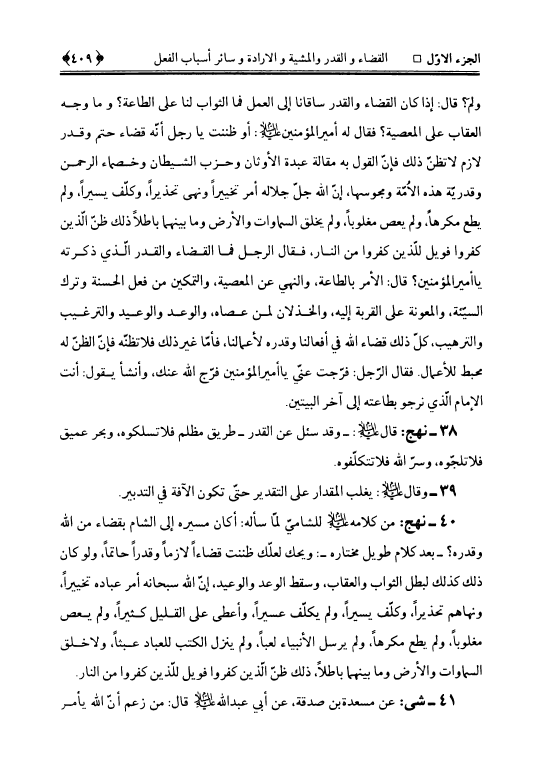 الجزء الاوّل □ القضاء و القدر والمشية و الارادة و سائر أسباب الفعل ﴿٤٠٩﴾
ولم؟ قال: إذا كان القضاء والقدر ساقانا إلى العمل فما الثواب لنا على الطاعة؟ و ما وجه
العقاب على المعصية؟ فقال له أميرالمؤمنين عليه السلام: أو ظننت يا رجل أنّه قضاء حتم وقدر
لازم لاتظنّ ذلك فإنّ القول به مقالة عبدة الأوثان وحزب الشيطان وخصماء الرحمن
وقدريّة هذه الاُمّة ومجوسها، إنّ الله جلّ جلاله أمر تخييراً ونهى تحذيراً، وكلّف يسيراً، ولم
يطع مكرهاً، ولم يعص مغلوباً، ولم يخلق السماوات والأرض وما بينهما باطلاً ذلك ظنّ الّذين
كفروا فويل للّذين كفروا من النار، فقال الرجل: فما القضاء والقدر الّذي ذكرته
ياأميرالمؤمنين؟ قال: الأمر بالطاعة، والنهي عن المعصية، والتمكين من فعل الحسنة وترك
السيّئة، والمعونة على القربة إليه، والخذلان لمن عصاه، والوعد والوعيد والترغيب
والترهيب، كلّ ذلك قضاء الله في أفعالنا وقدره لأعمالنا، فأمّا غيرذلك فلاتظنّه فإنّ الظنّ له
محبط للأعمال. فقال الرّجل: فرّجت عنّي ياأميرالمؤمنين فرّج الله عنك، وأنشأ يقول: أنت
الإمام الّذي نرجو بطاعته إلى آخر البيتين.
٣٨ ـ نهج: قال عليه السلام: ـ وقد سئل عن القدر ـ طريق مظلم فلاتسلكوه، وبحر عميق
فلاتلجّوه، وسرّ الله فلاتتكلّفوه.
٣٩ ـ وقال عليه السلام: يغلب المقدار على التقدير حتّى تكون الآفة في التدبير.
٤٠ ـ نهج: من كلامه عليه السلام للشاميّ لمّا سأله: أكان مسيره إلى الشام بقضاء من الله
وقدره؟ ـ بعد كلام طويل مختاره ـ: ويحك لعلّك ظننت قضاءاً لازماً وقدراً حاتماً، ولو كان
ذلك كذلك لبطل الثواب والعقاب، وسقط الوعد والوعيد، إنّ الله سبحانه أمر عباده تخييراً،
ونهاهم تحذيراً، وكلّف يسيراً، ولم يكلّف عسيراً، وأعطى على القليل كثيراً، ولم يعص
مغلوباً، ولم يطع مكرهاً، ولم يرسل الأنبياء لعباً، ولم ينزل الكتب للعباد عبثاً، ولاخلق
السماوات والأرض وما بينهما باطلاً، ذلك ظنّ الّذين كفروا فويل للّذين كفروا من النار.
٤١ ـ شى: عن مسعدةبن صدقة، عن أبي عبدالله عليه السلام قال: من زعم أنّ الله يأمر